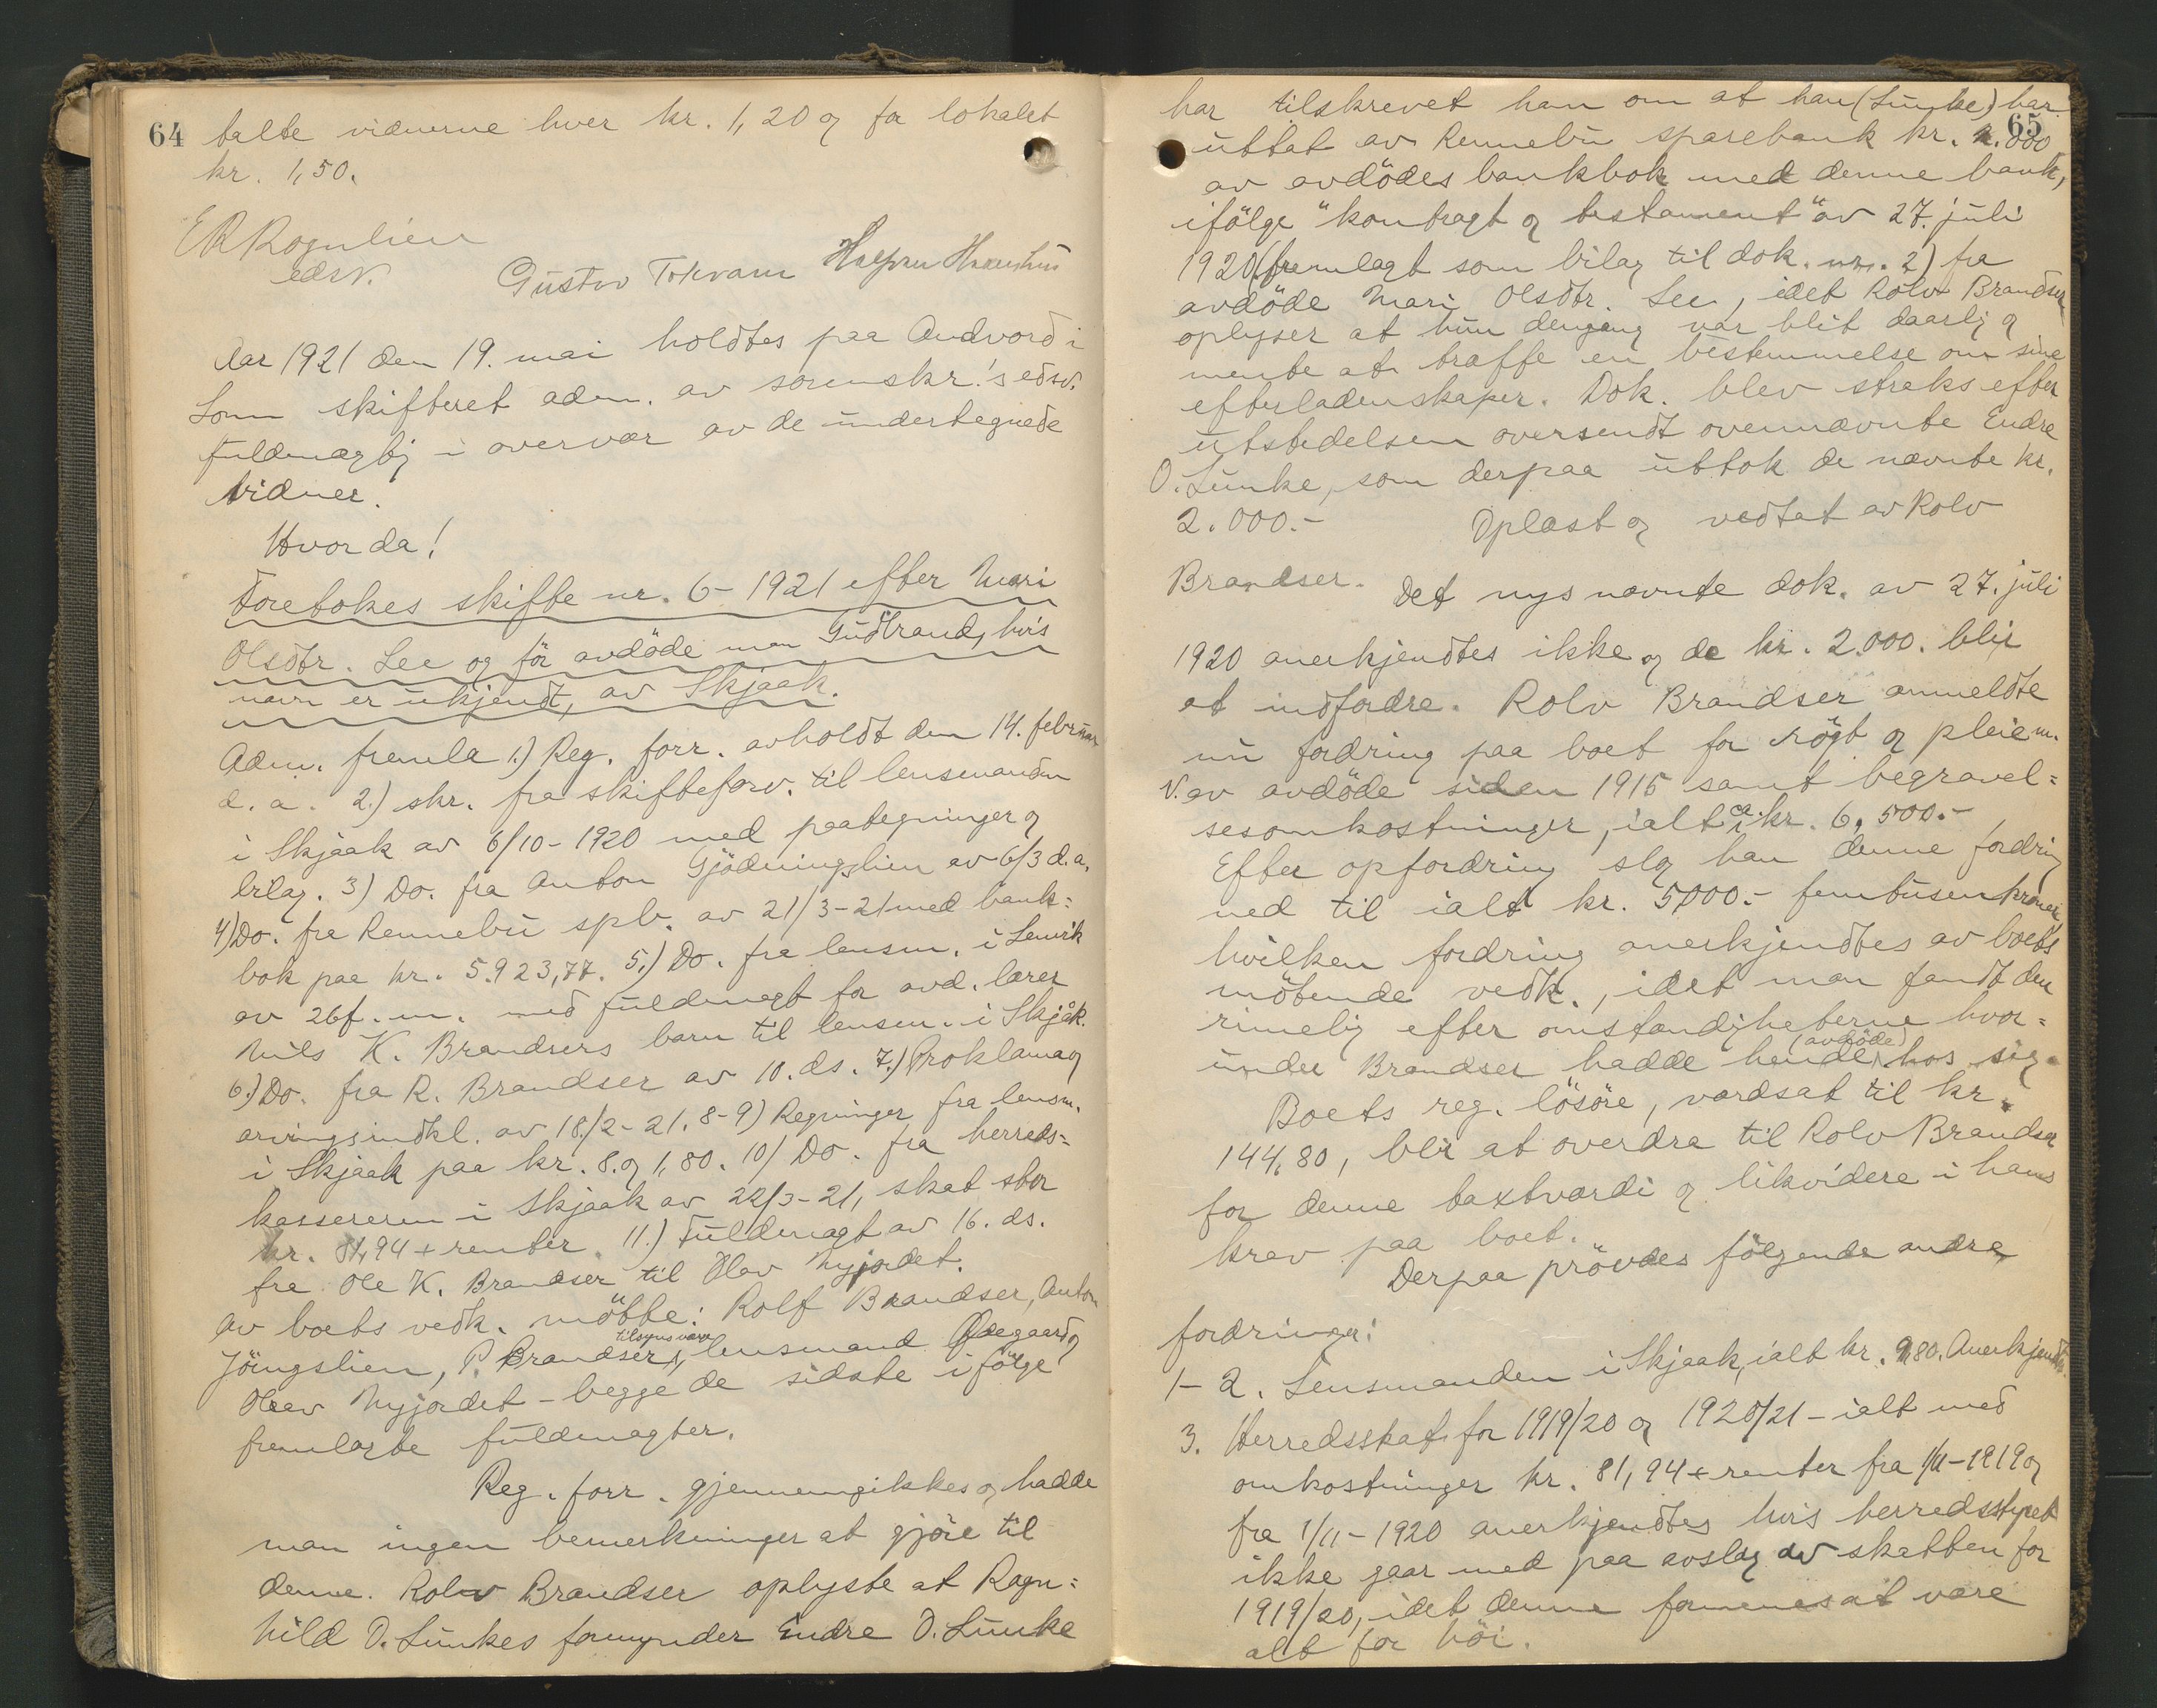 64
talte vidnerne hver kr. 1,20 og for lokalet
kr. 1,50.
E R Rognlien
edsv.
Gustav Tokvam Halvor Haanshus
Aar 1921 den 19. mai holdtes paa Andvord i
Lom skifteret adm. av sorenskr.'s edsv.
fuldmægtig i overvær av de undertegnede
vidner.
Hvorda!
Foretokes skifte nr. 6-1921 efter Mari
Olsdtr. Lee og før avdøde man Gudbrand, hvis
navn er ukjendt, av Skjaak.
Adm. fremla 1.) Reg. forr. avholdt den 14. februar
d.a. 2.) skr. fra skifteforv. til lensmanden
i Skjaak av 6/10-1920 med paategninger og
bilag. 3) Do. fra Anton Gjödningslien av 6/3 d.a.
4) Do. fra Rennebu spb. av 21/3-21 med bank=
bok paa kr. 5.923,77. 5.) Do. fra lensm. i Lenvik
av 26 f.m. med fuldmagt for avd. lærer
Nils K. Brandsers barn til lensm. i Skjåk.
6.) Do. fra R. Brandser av 10. ds. 7.) Proklama og
arvingsindkl. av 18/2-21. 8-9) Regninger fra lensm.
i Skjaak paa kr. 8. og 1,80. 10) Do. fra herreds=
kassereren i Skjaak av 22/3-21, skat stor
kr. 81,94 + renter. 11.) Fuldmagt av 16. ds.
fra Ole K. Brandser til Olav Nyjordet.
Av boets vedk. møtte: Rolf Brandser, Anton
Jöingslien, P. Brandser, tilsynsværge lensmand Ødegaard og
Olav Nyjordet - begge de sidste ifølge
fremlagte fuldmagter.
Reg. forr. gjennemgikkes og hadde
man ingen bemerkninger at gjöre til
denne. Rolv Brandser oplyste at Ragn=
hild O. Lunkes formynder Endre O. Lunke
65
har tilskrevet ham om at han (Lunke) har
uttat av Rennebu sparebank kr. 2.000
av avdödes bankbok med denne bank,
ifölge "kontragt og testament" av 27. juli
1920 (fremlagt som bilag til dok. nr. 2) fra
avdöde Mari Olsdtr. Lee, idet Rolv Brandser
oplyser at hun dengang var blit daarlig og
mente at træffe en bestemmelse om sine
efterladenskaper. Dok. blev straks efter
utstedelsen oversendt ovennævnte Endre
O. Lunke, som derpaa uttok de nævnte kr.
2.000.- Oplæst og vedtat av Rolv
Brandser. Det nys nævnte dok. av 27. juli
1920 anerkjendtes ikke og de kr. 2.000. blir
at indfordre. Rolv Brandser anmeldte
nu fordring paa boet for rögt og pleie m.
v. av avdöde siden 1915 samt begravel=
sesomkostninger, ialt ca. kr. 6,500.-
Efter opfordring slog han denne fordring
ned til ialt kr. 5000.- femtusen kroner
hvilken fordring anerkjendtes av boets
mötende vedk., idet man fandt den
rimelig efter omstændigheterne hvor=
under Brandser hadde hende (avdöde) hos sig.
Boets reg. lösöre, værdsat til kr.
144,80, blir at overdra til Rolv Brandser
for denne taxtværdi og likvidere i hans
krav paa boet.
Derpaa prövdes fölgende andre
fordringer:
1-2. Lensmanden i Skjaak, ialt kr. 9,80. Anerkjendtes.
3. Herredsskat for 1919/20 og 1920/21 - ialt med
omkostninger kr. 81,94 + renter fra 1/11-1919 og
fra 1/11-1920 anerkjendtes hvis herredsstyret
ikke gaar med paa avslag av skatten for
1919/20, idet denne formenes at være
alt for höi.